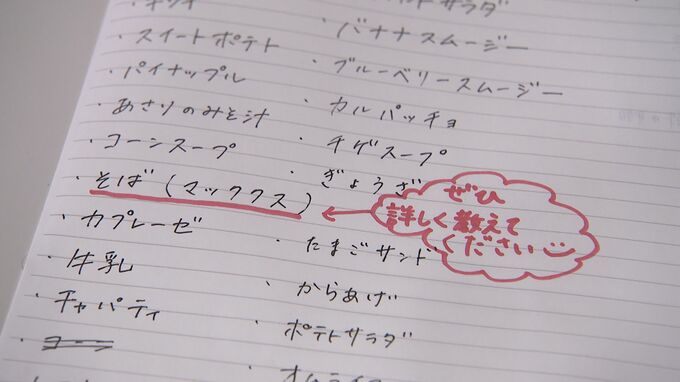 ・スイートポテト
・パイナップル
・あさりのみそ汁
・コーンスープ
・そば(マックス)
・カプレーゼ
・牛乳
・チャパティ
サラダ
・バナナスムージー
・ブルーベリースムージー
・カルパッチョ
・チゲスープ
・ぎょうざ
・たまごサンド
・からあげ
・ポテトサラダ
ぜひ
詳しく教えて
ください